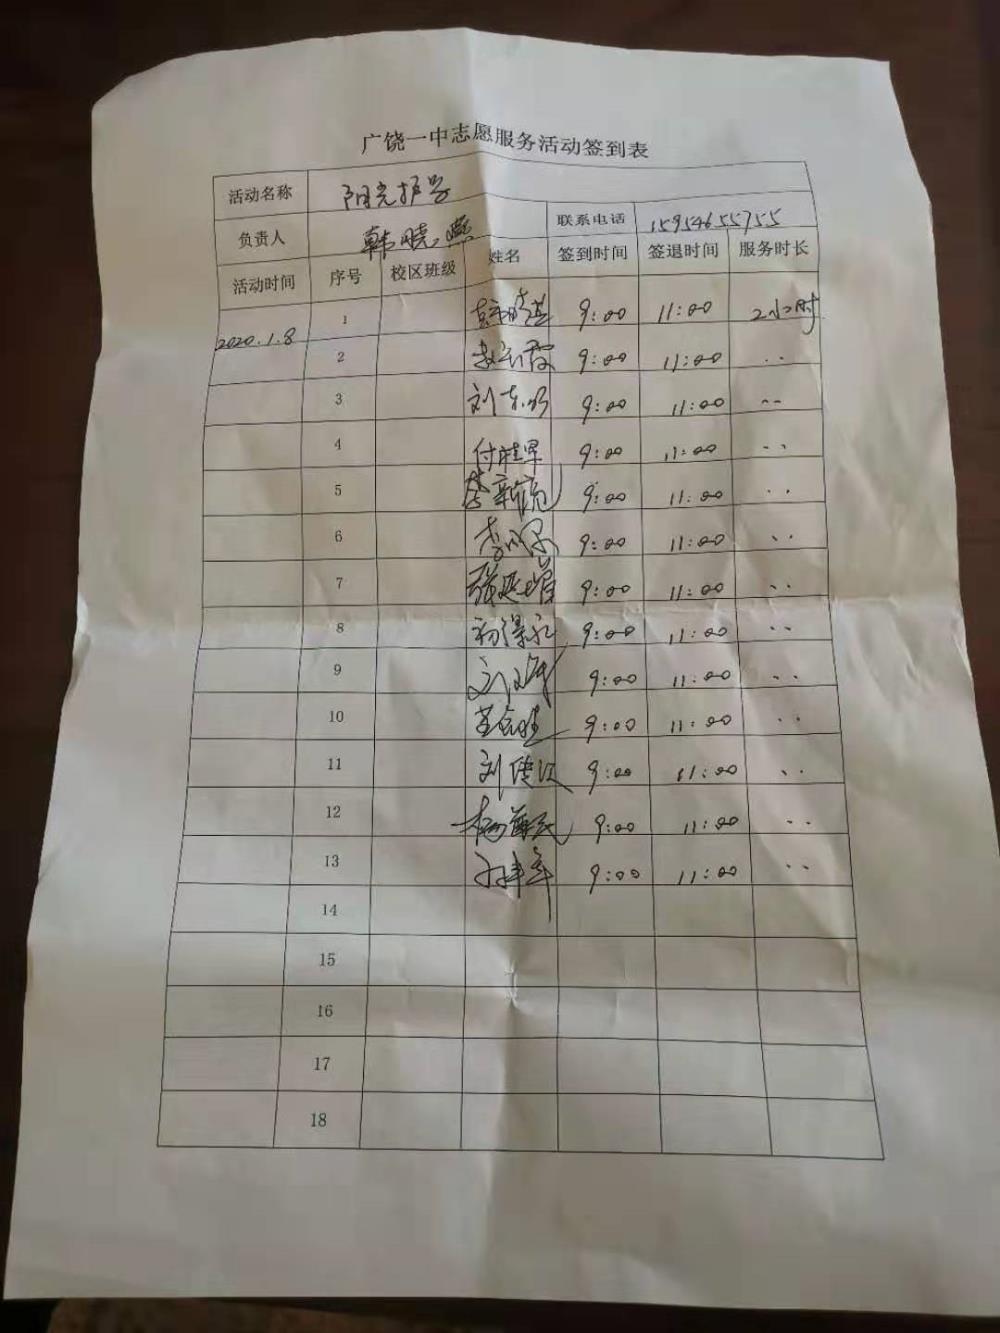 广饶一中志愿服务活动签到表
活动名称 阳光护学
负责人 韩晓燕 联系电话 15954655755
活动时间 序号 校区班级 姓名 签到时间 签退时间 服务时长
2020.1.8 1 9:00 11:00 2小时
2 赵云霞 9:00 11:00 ··
3 刘东明 9:00 11:00 ··
4 付桂军 9:00 11:00 ··
5 9:00 11:00 ··
6 9:00 11:00 ··
7 9:00 11:00 ··
8 9:00 11:00 ··
9 9:00 11:00 ··
10 9:00 11:00 ··
11 9:00 11:00 ··
12 9:00 11:00 ··
13 9:00 11:00 ··
14
15
16
17
18